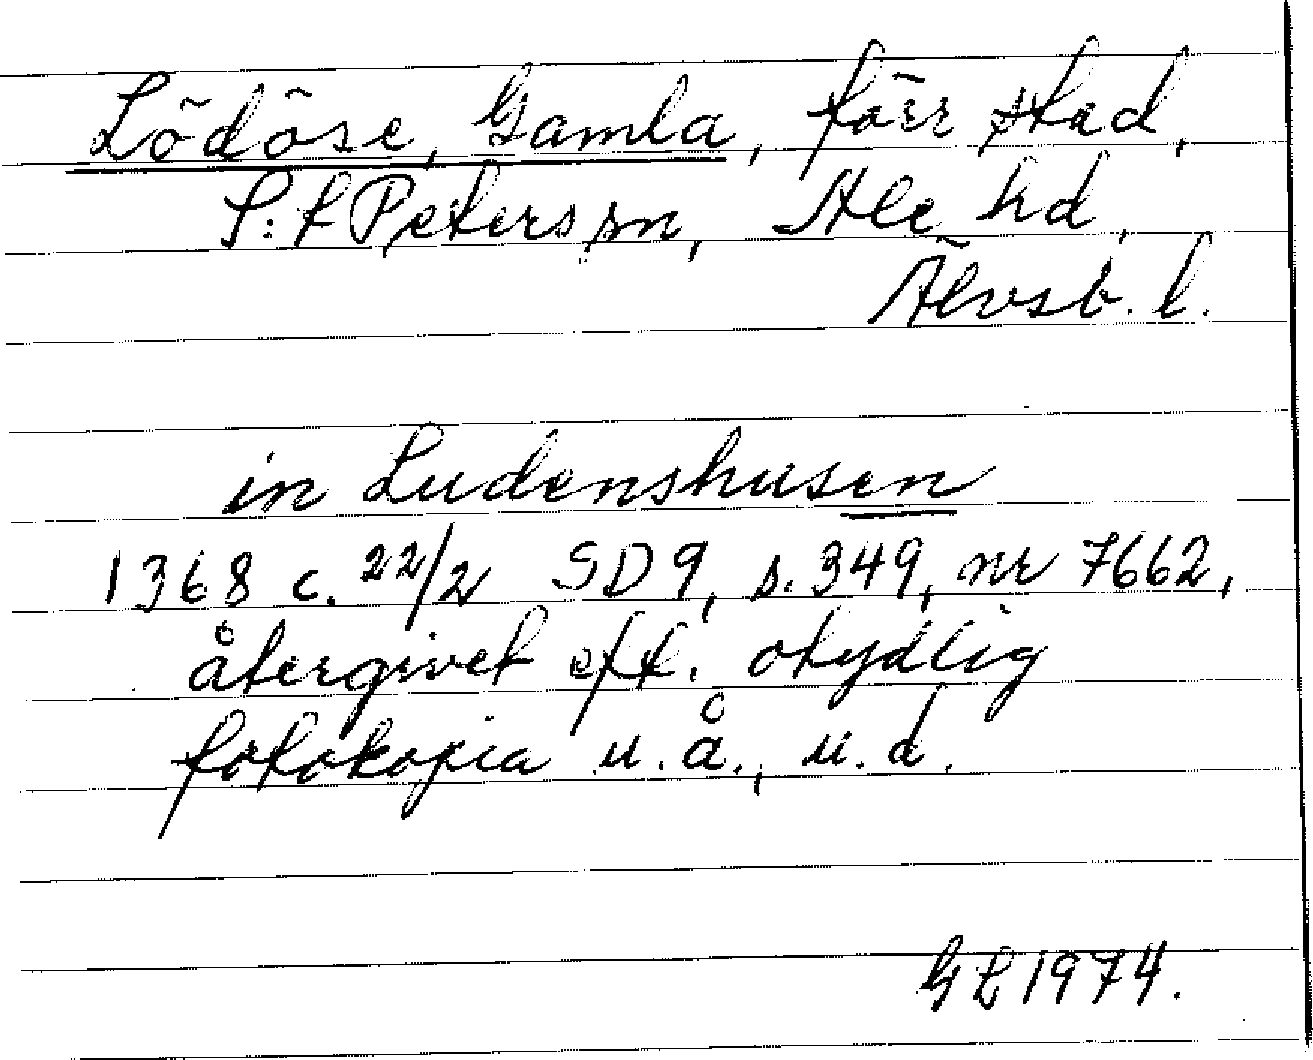 Lödöse, Gamla, förr stad,
S:t Peters sn, Ale hd,
Älvsb. l.
in Ludenshusen
1368 c. 22/2 SD 9, s. 349, nr 7662,
återgivet eft. otydlig
fotokopia u. å., u. d.
GL 1974.